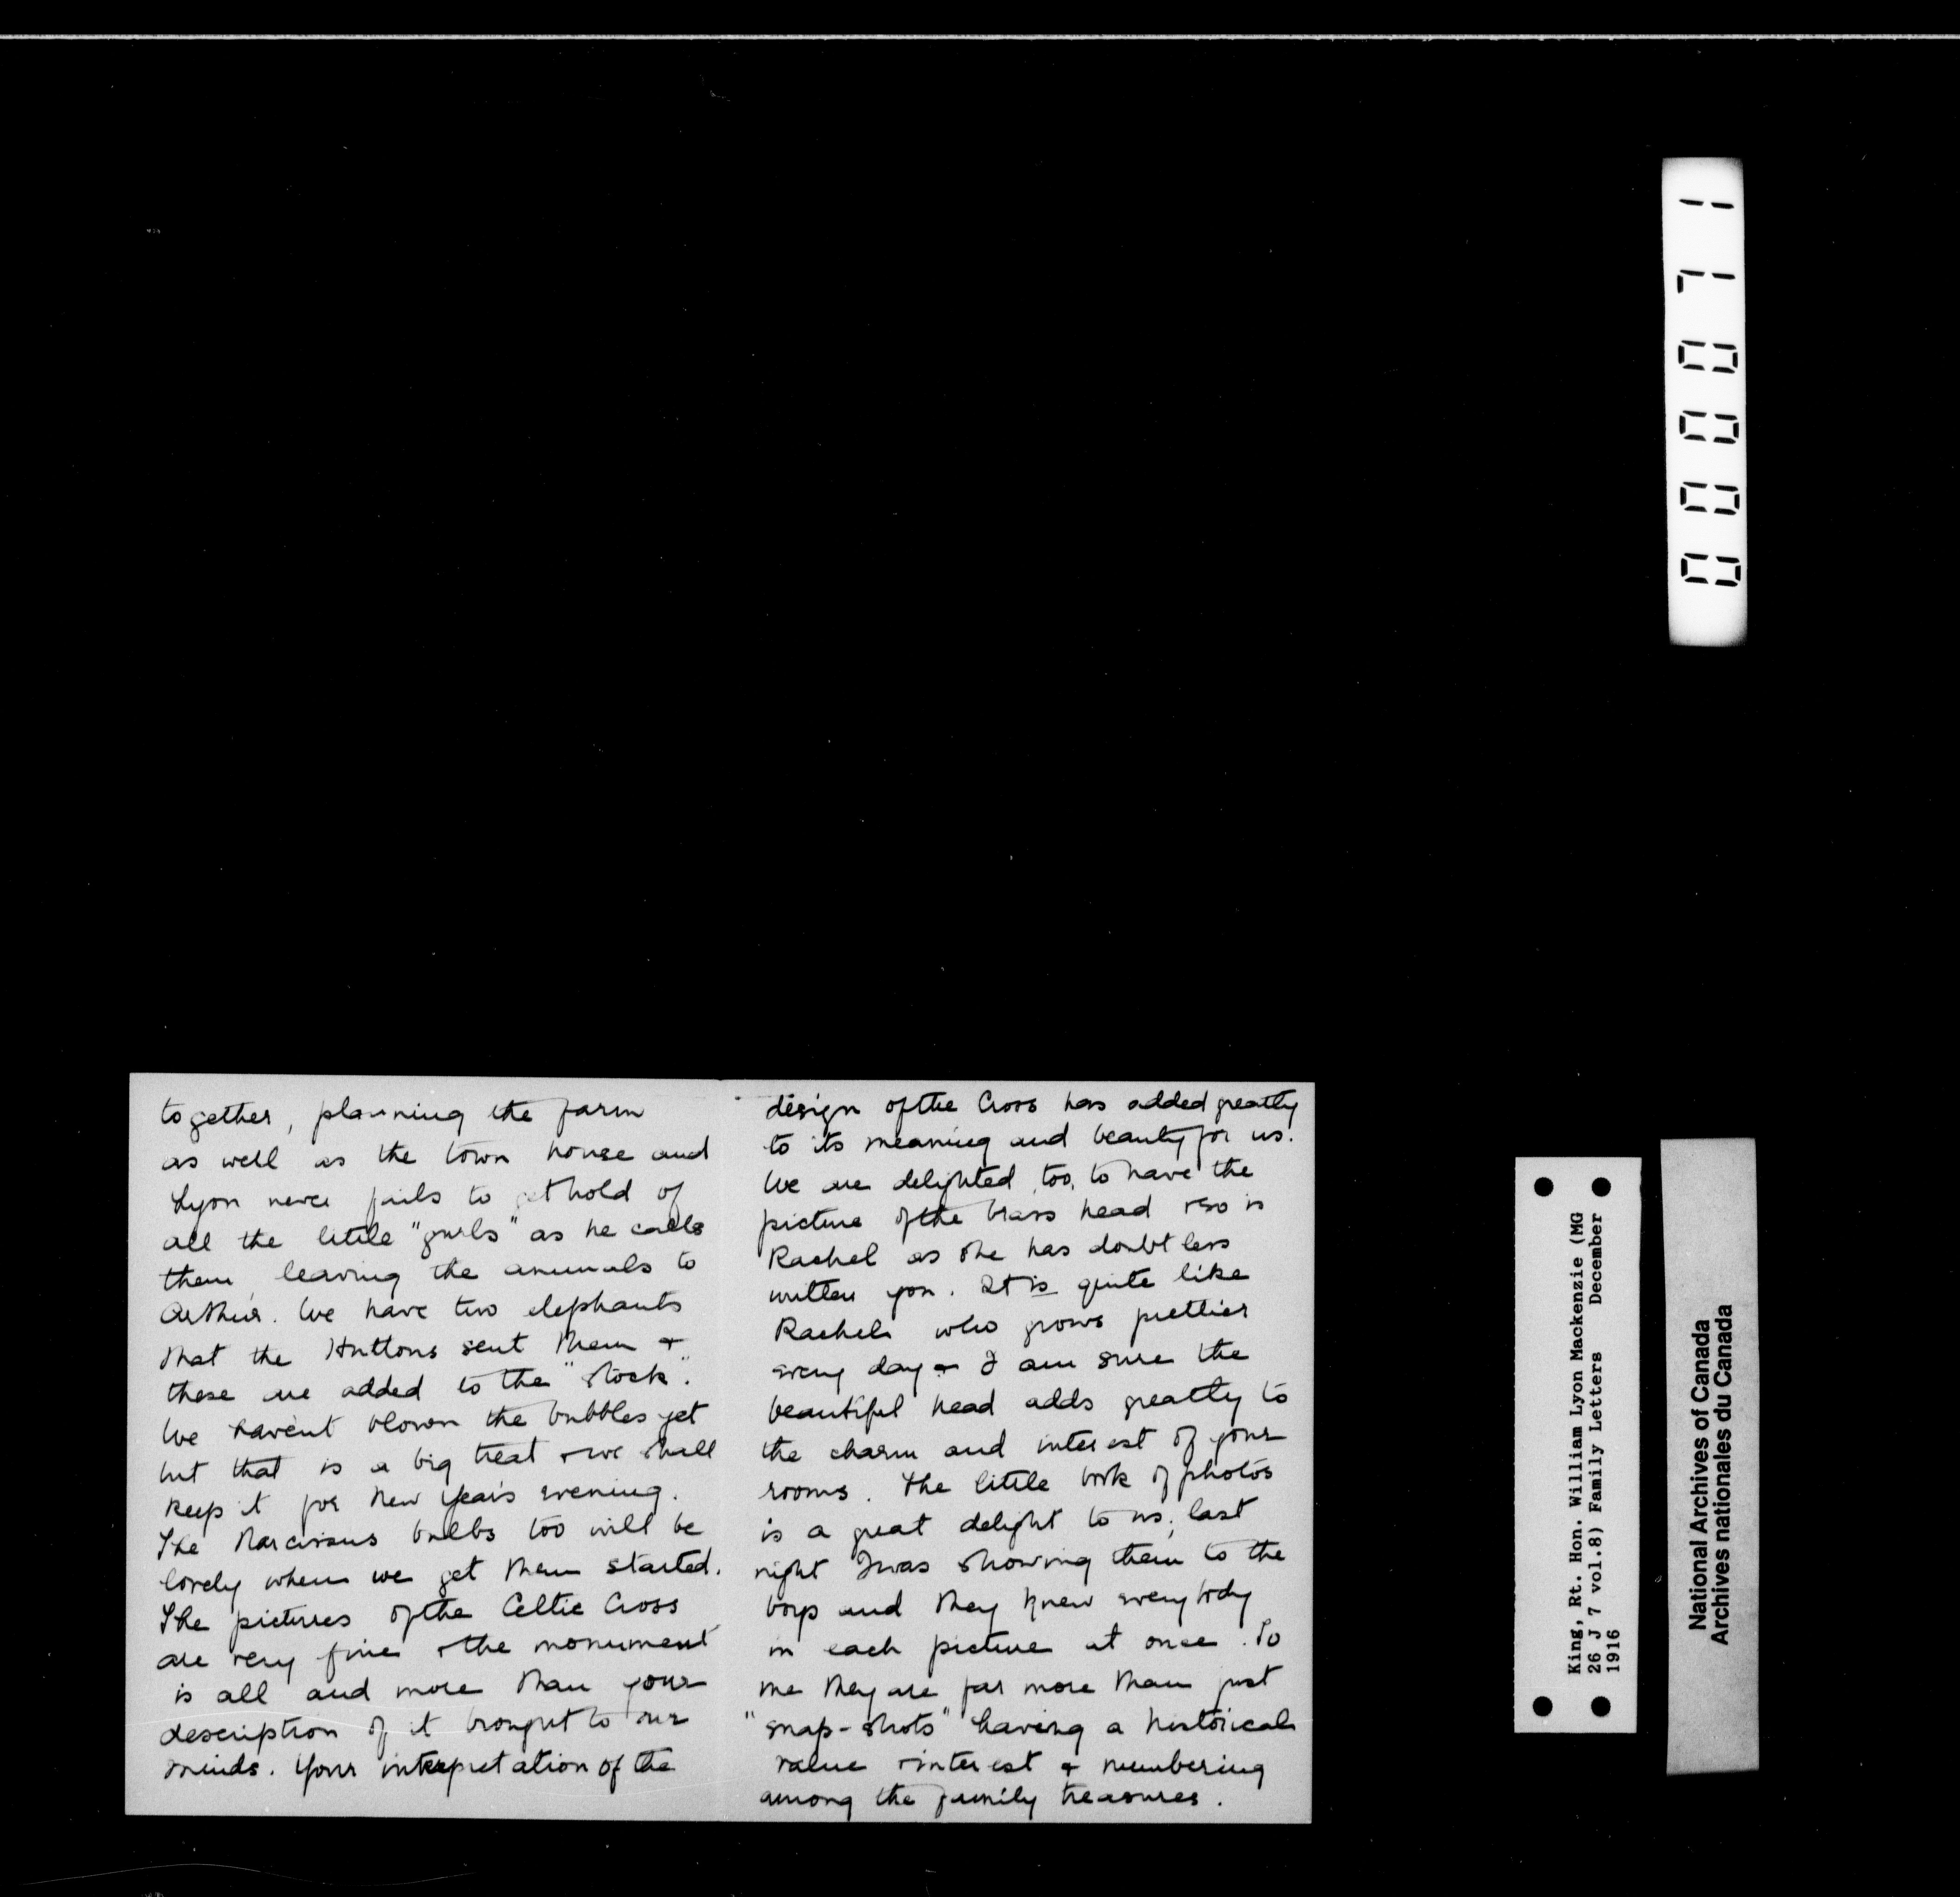 together, planning the farm
as well as the town house and
Lyon never fails to get hold of
all the little "gurls" as he calls
them leaving the animals to
Arthur. We have two elephants
that the Huttons sent them &
these are added to the "stock".
We haven't blown the bubbles yet
but that is a big treat & we shall
keep it for New Year's evening.
The Narcissus bulbs too will be
lovely when we get them started.
The pictures of the Celtic Cross
are very fine & the monument
is all and more than your
description of it brought to our
minds. Your interpretation of the
design of the Cross has added greatly
to its meaning and beauty for us.
We are delighted, too, to have the
picture of the brass head & so is
Rachel as she has doubtless
written you. It is quite like
Rachel who grows prettier
every day & I am sure the
beautiful head adds greatly to
the charm and interest of your
rooms. The little book of photos
is a great delight to us; last
night I was showing them to the
boys and they knew everybody
in each picture at once. To
me they are far more than just
"snap-shots" having a historical
value & interest & numbering
among the family treasures.
000071
King, Rt. Hon. William Lyon Mackenzie (MG
26 J 7 vol.8) Family Letters December
1916
National Archives of Canada
Archives nationales du Canada